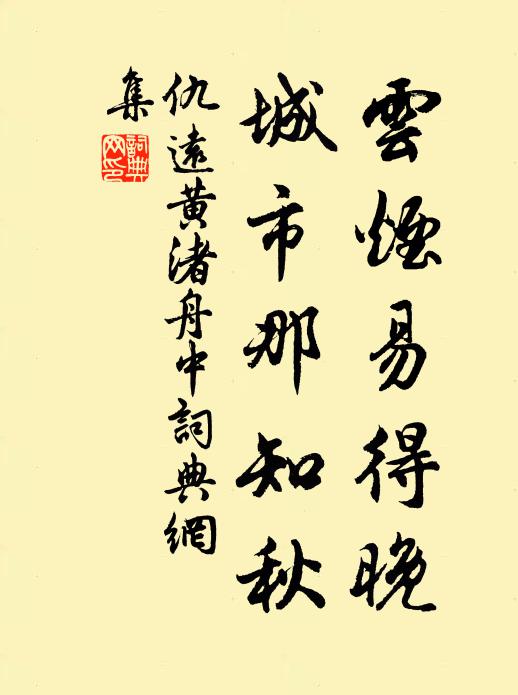 雲煙易得晚
城市那知秋
仇遠黃渚舟中詞典網
集
詞典
网印